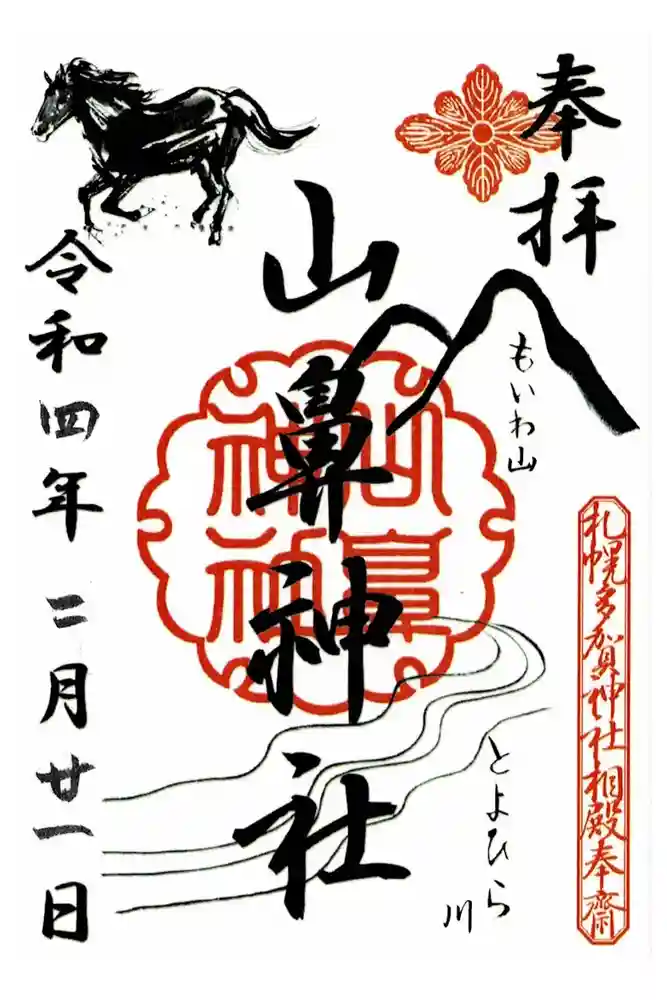 奉拝
もいわ山
札幌多賀神社相殿奉斎
山鼻神社
山鼻神社
とよひら川
令和四年二月廿一日